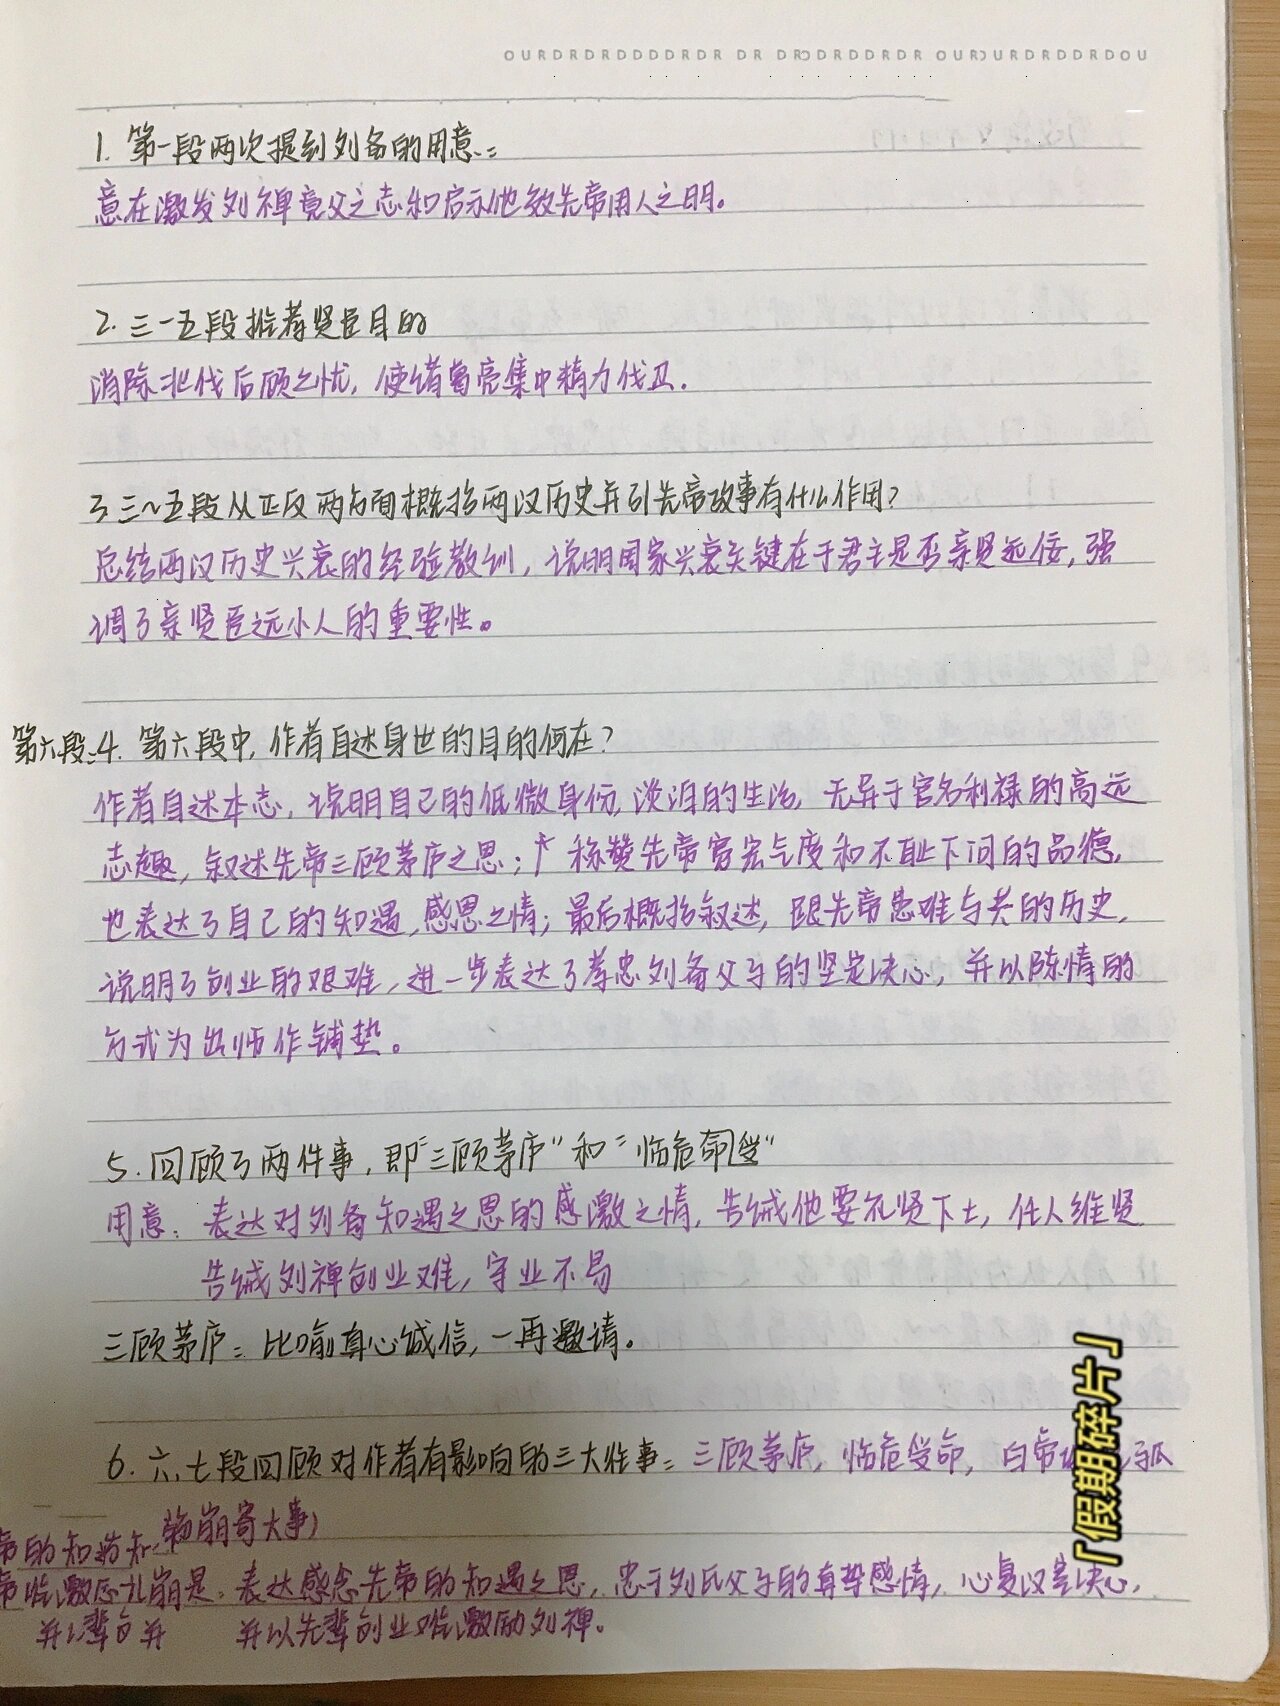 1. 第一段两次提到刘备的用意:
意在激发刘禅竟父之志和启示他效先帝用人之明。
2. 三一五段推荐贤臣目的
消除北伐后顾之忧, 使诸葛亮集中精力伐卫.
3 三~五段从正反两方面概括两汉历史并引先帝故事有什么作用?
总结两汉历史兴衰的经验教训, 说明国家兴衰关键在于君主是否亲贤远佞, 强
调了亲贤臣远小人的重要性。
第六段: 4. 第六段中, 作者自述身世的目的何在?
作者自述本志, 说明自己的低微身份, 淡泊的生活, 无异于官名利禄的高远
志趣, 叙述先帝三顾茅庐之恩; 称赞先帝宽宏气度和不耻下问的品德,
也表达了自己的知遇, 感恩之情; 最后概括叙述, 跟先帝患难与共的历史,
说明了创业的艰难, 进一步表达了孝忠刘备父子的坚定决心, 并以陈情的
方式为出师作铺垫。
5. 回顾了两件事, 即"三顾茅庐"和"临危命受"
用意: 表达对刘备知遇之恩的感激之情, 告诫他要礼贤下士, 任人维贤
告诫刘禅创业难, 守业不易
三顾茅庐: 比喻真心诚信, 一再邀请。
6. 六、七段回顾对作者有影响的三大件事: 三顾茅庐, 临危受命, 白帝 孤
崩寄大事)
表达感念先帝的知遇之恩, 忠于刘氏父子的真挚感情, 心复汉室决心,
并以先辈创业难激励刘禅.
「假期碎片」